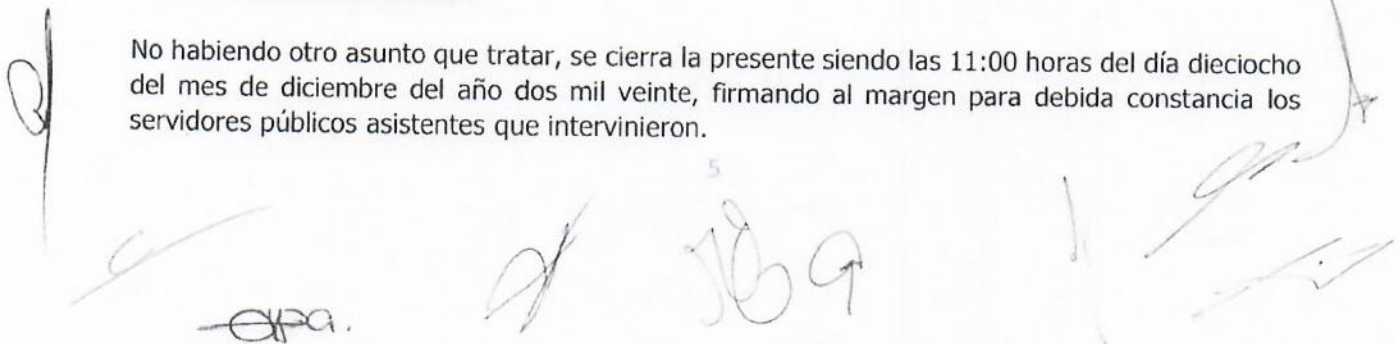 No habiendo otro asunto que tratar, se cierra la presente siendo las 11:00 horas del día dieciocho
del mes de diciembre del año dos mil veinte, firmando al margen para debida constancia los
servidores públicos asistentes que intervinieron.
5